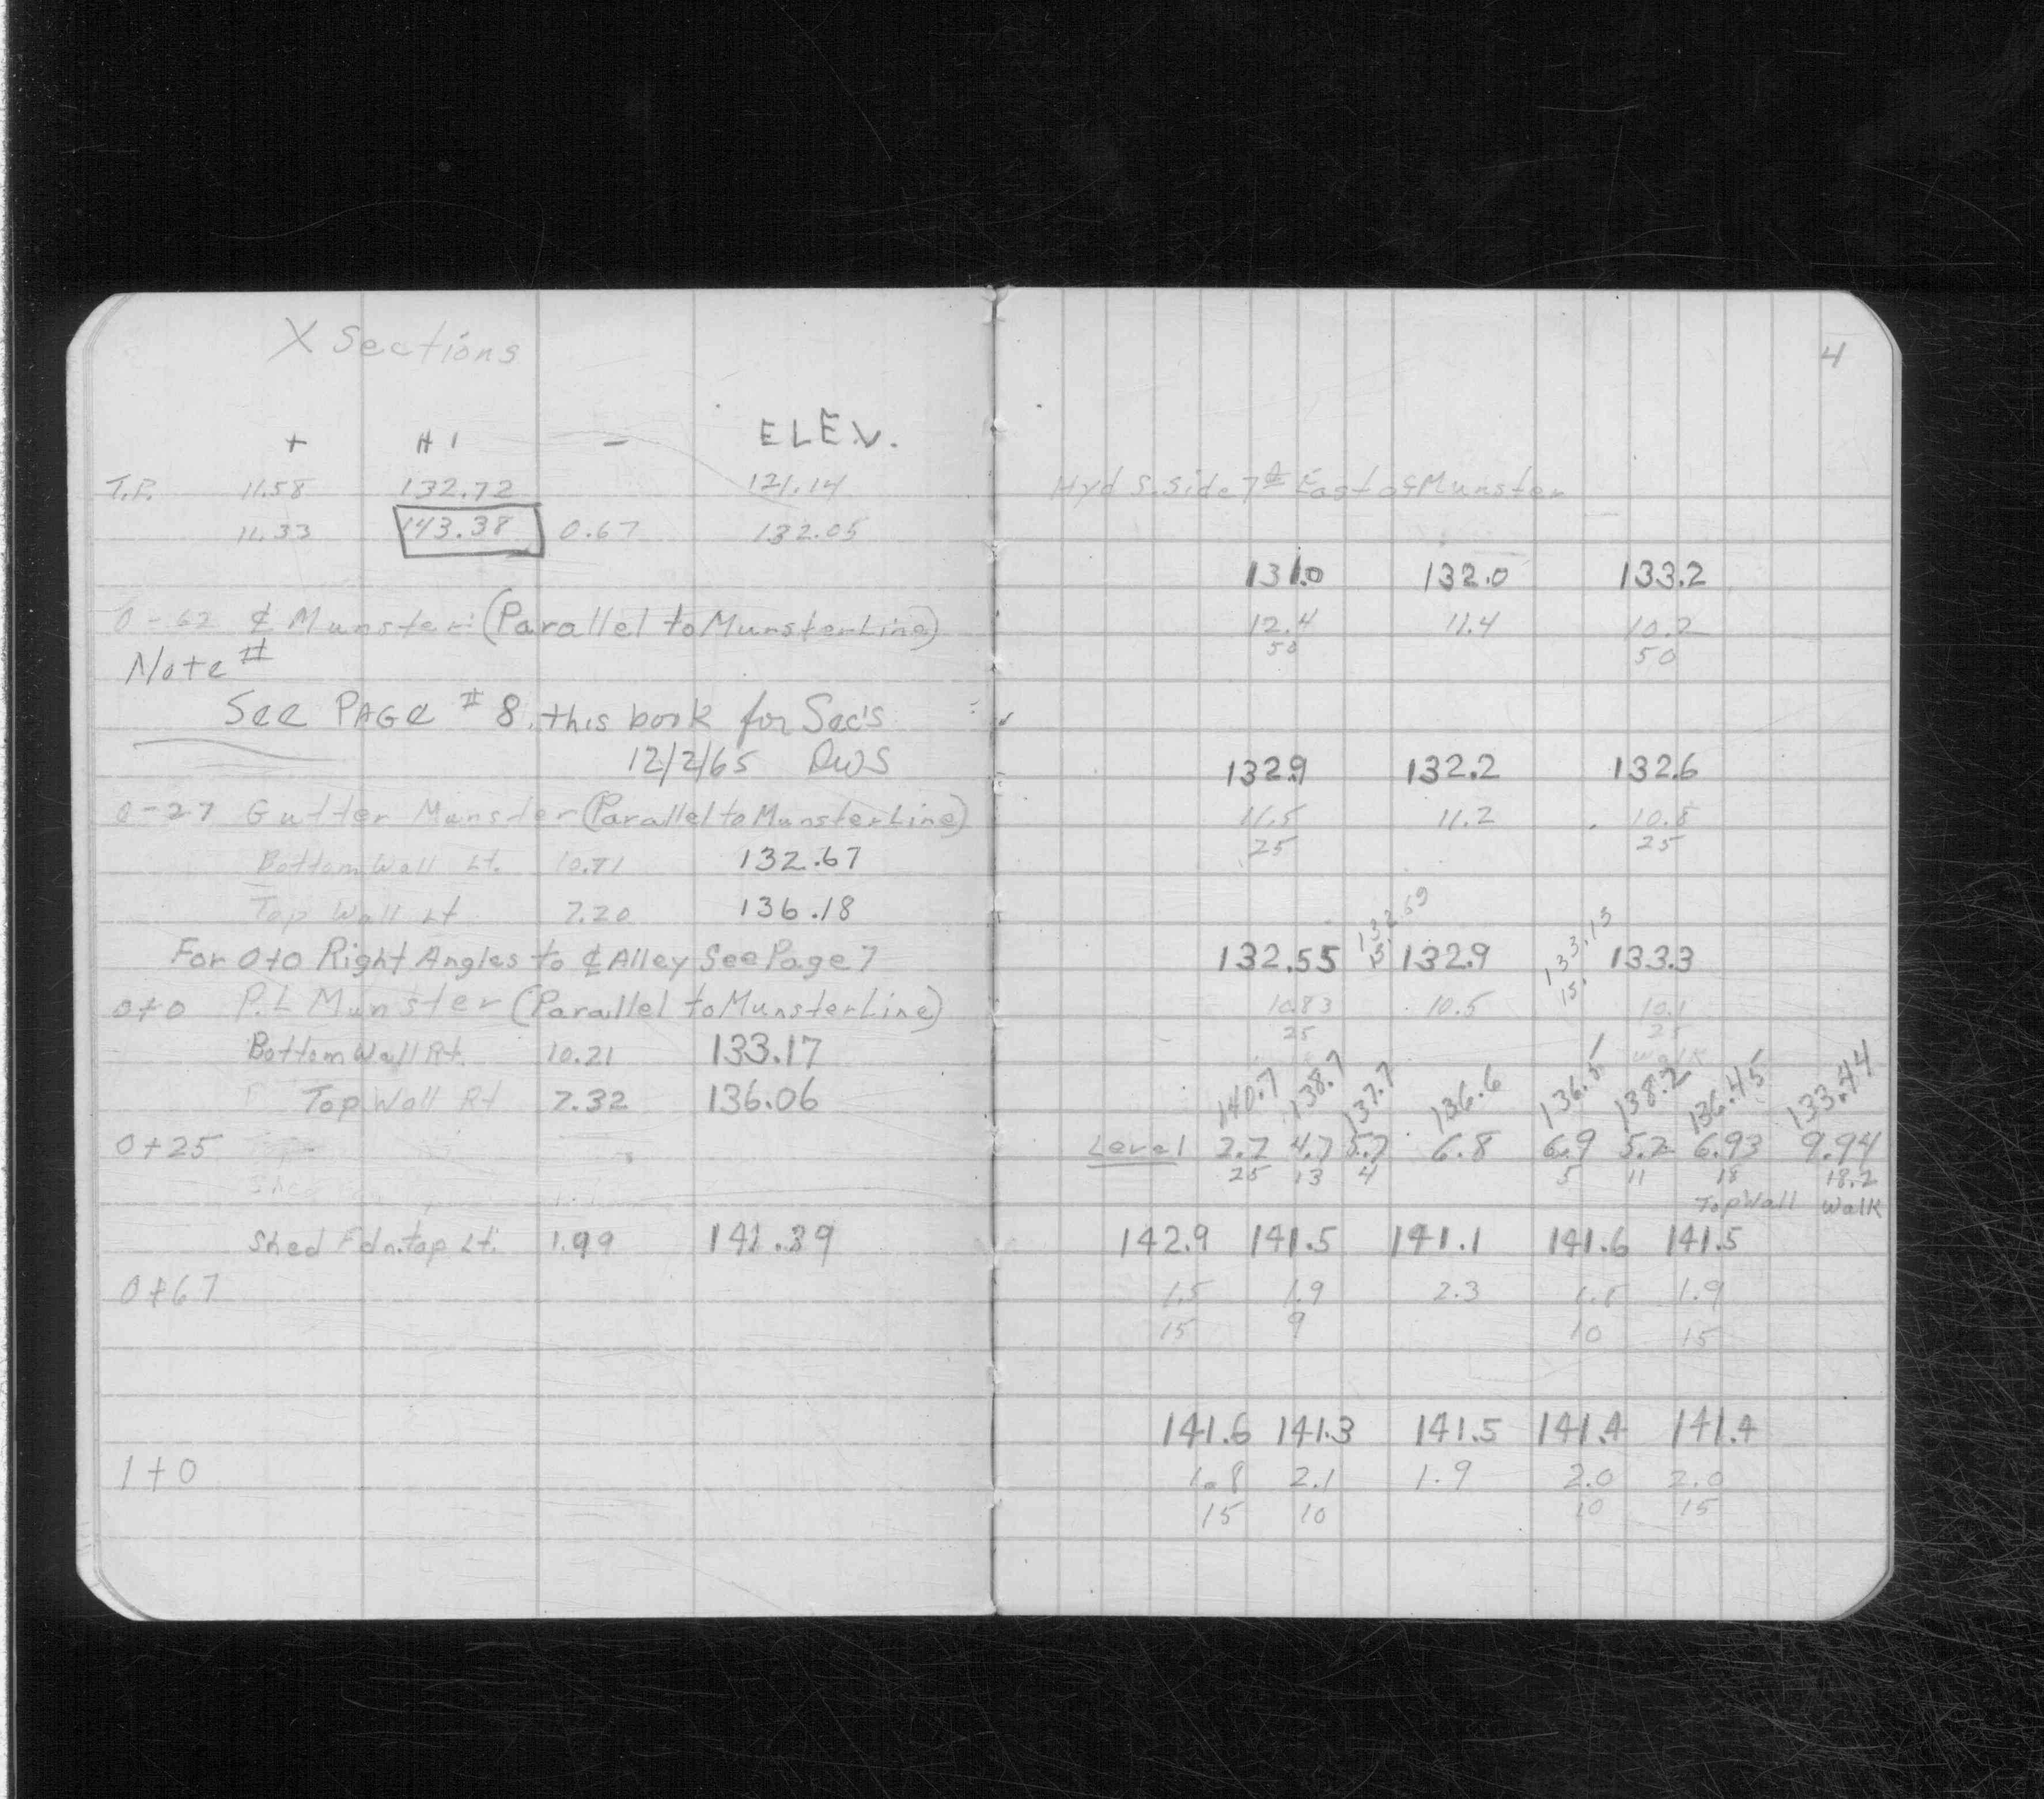 X Sections
+ HI - ELEV.
T.P. 11.58 132.72 121.14
11.33 143.38 0.67 132.05
0-62 ℄ Munster: (Parallel to Munster Line)
Note #
See PAGE # 8, this book for Sec's
12/2/65 DWS
0-27 Gutter Munster (Parallel to Munster Line)
Bottom Wall Lt. 10.71 132.67
Top Wall Lt 7.20 136.18
For 0+0 Right Angles to ℄ Alley See Page 7
0+0 P.L Munster (Parallel to Munster Line)
Bottom Wall Rt. 10.21 133.17
Top Wall Rt 7.32 136.06
0+25
Shed Fdn. top Lt. 1.99 141.39
0+67
1+0
4
Hyd S. Side 7th East of Munster
131.0 132.0 133.2
12.4 11.4 10.2
50 50
132.9 132.2 132.6
11.5 11.2 10.8
25 25
132.69 133.13
132.55 15 132.9 15. 133.3
10.83 10.5 10.1
25 25
walk
140.7 138.7 137.7 136.6 136.5 138.2 136.45 133.44
Level 2.7 4.7 5.7 6.8 6.9 5.2 6.93 9.94
25 13 4 5 11 18 18.2
Top Wall Walk
142.9 141.5 141.1 141.6 141.5
1.5 1.9 2.3 1.8 1.9
15 9 10 15
141.6 141.3 141.5 141.4 141.4
1.8 2.1 1.9 2.0 2.0
15 10 10 15